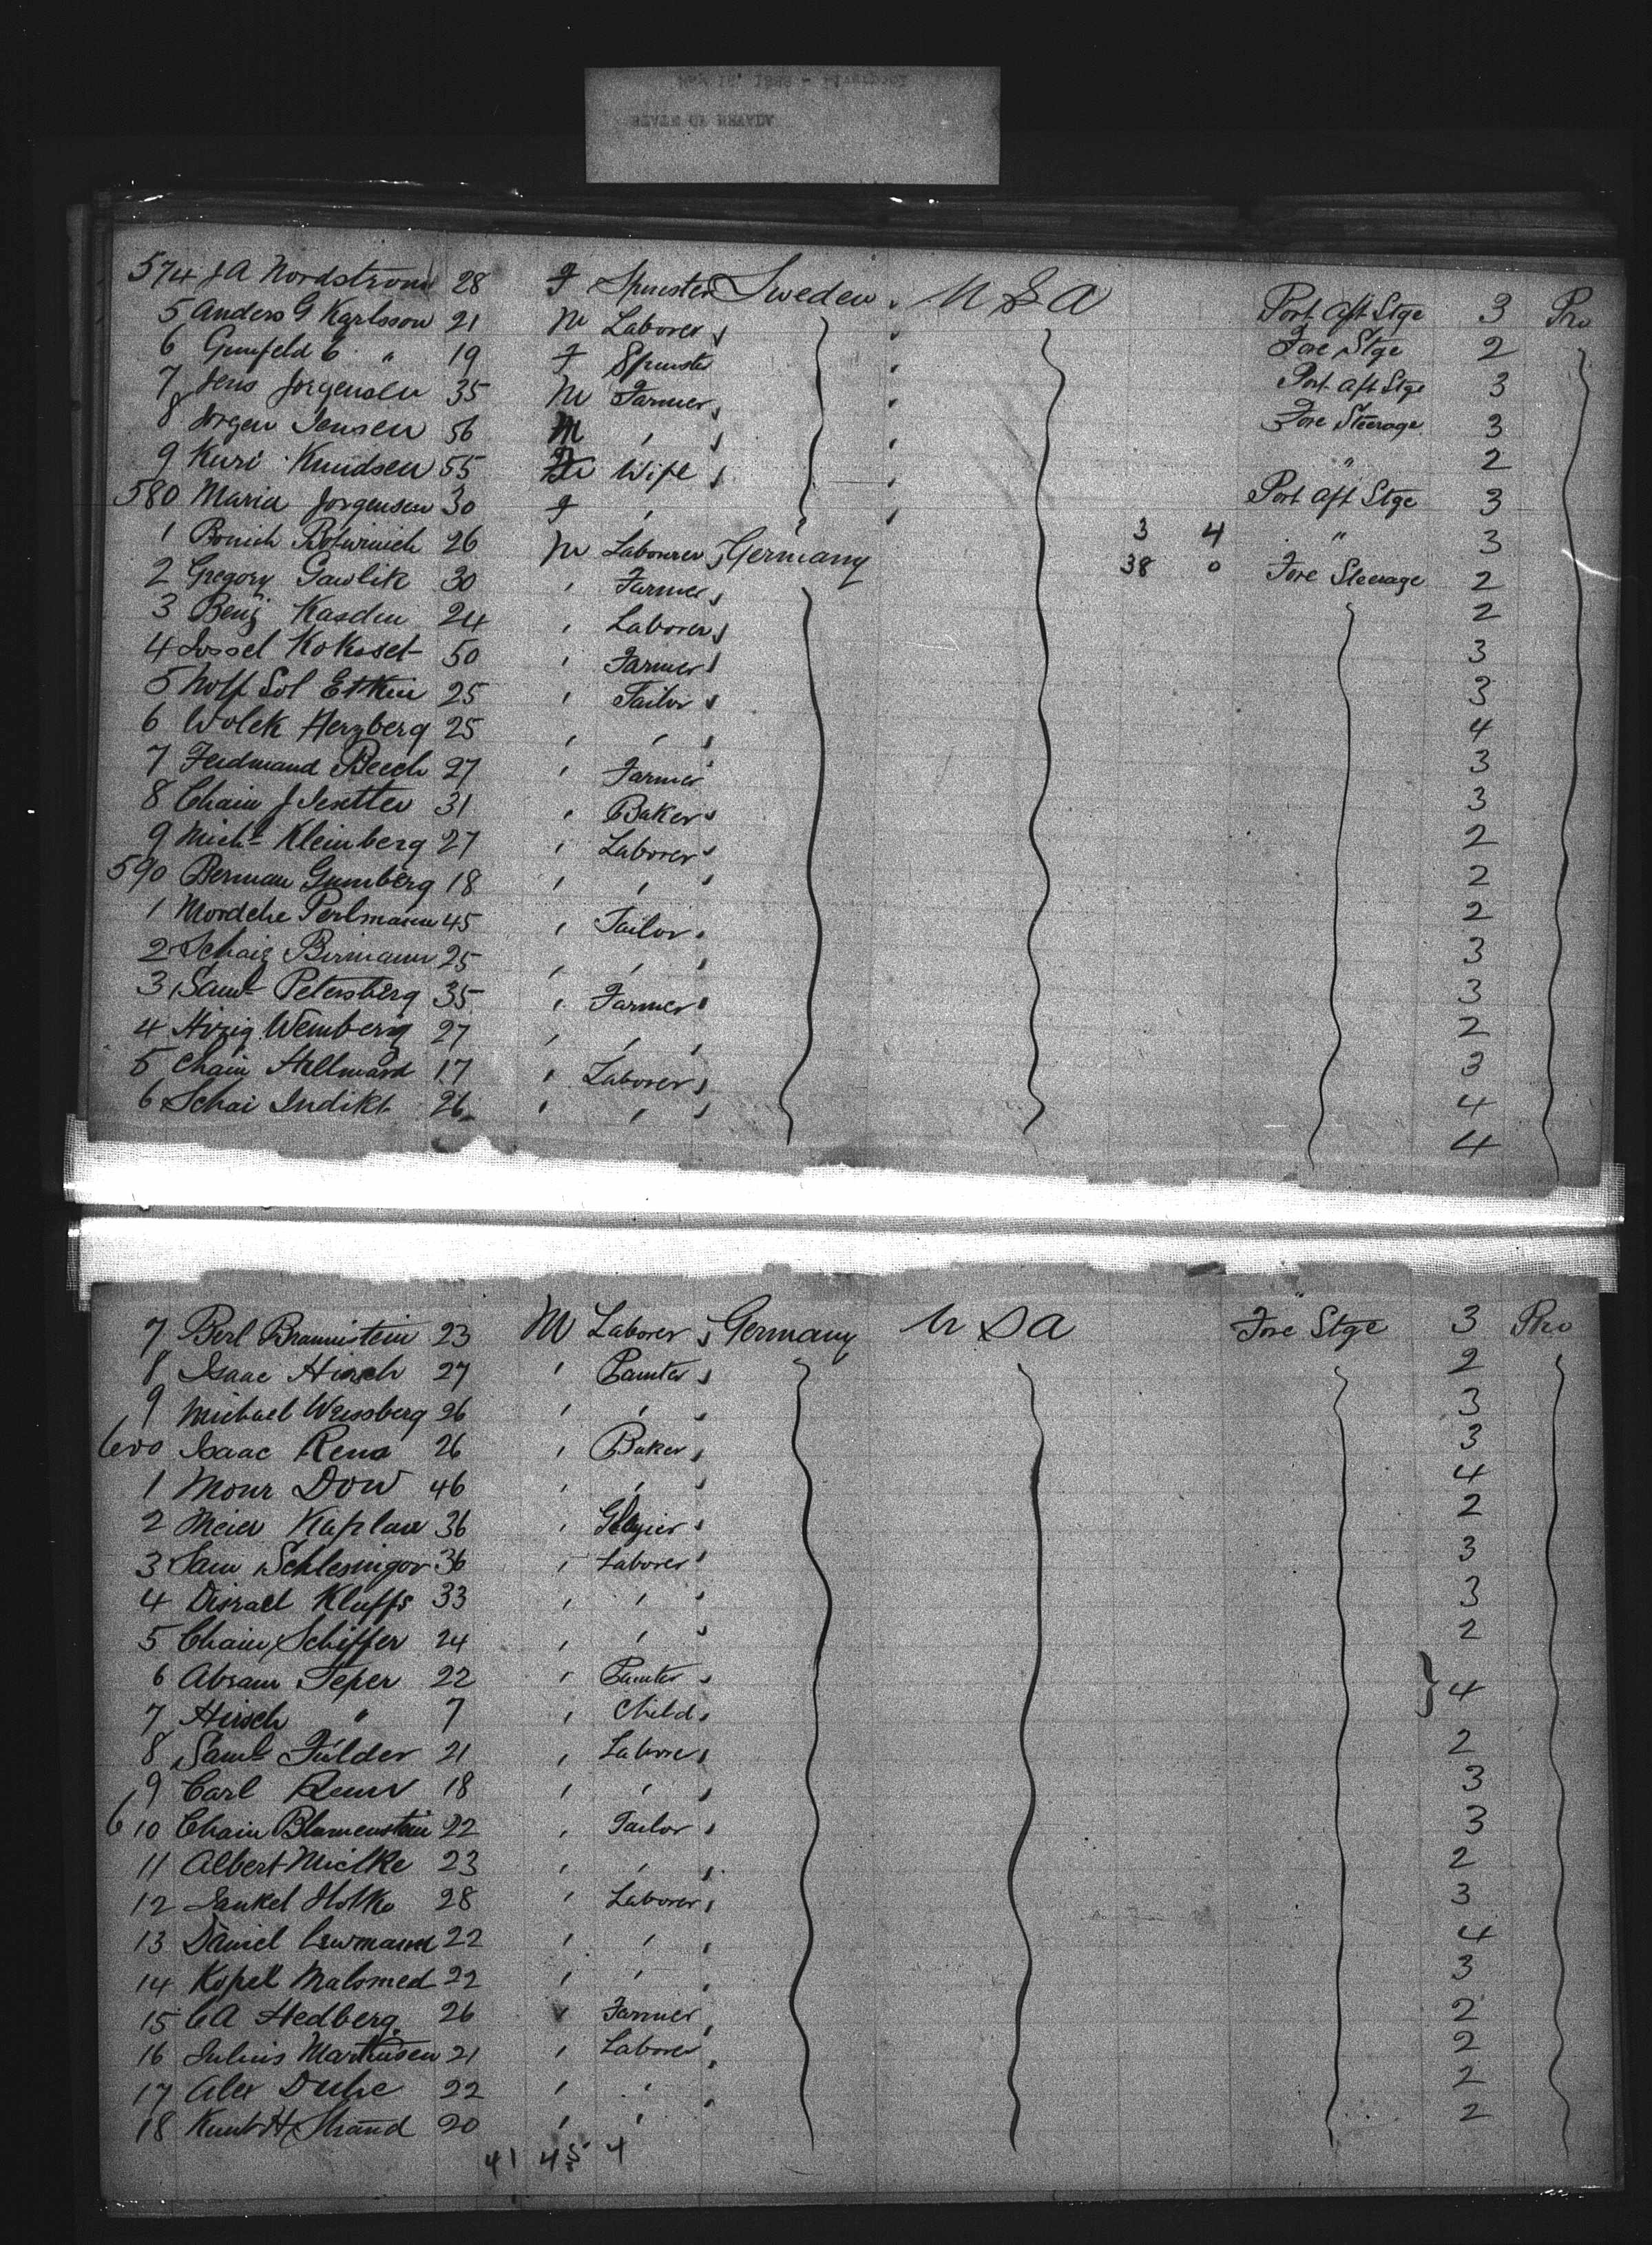 574 J A Nordstrom 28 F Spinster Sweden U S A Port Aft Stge 3 Pro
5 Anders G Karlsson 21 M Laborer Fore Stge 2
6 E " 19 F Spinster Port Aft Stge 3
7 Jens Jorgensen 35 M Farmer Fore Steerage 3
8 Jorgen Jensen 56 M " " 2
9 Kuri Knudsen 55 Wife Port Aft Stge 3
580 Maria Jorgensen 30 F " " 3
1 26 M Labourer Germany 3 4 Fore Steerage 2
2 Gregory Gawlik 30 " Farmer 38 0 2
3 Benj Kasdin 24 " Laborer 3
4 Kokoset 50 " Farmer 3
5 Wolf Sol Etkin 25 " Tailor 4
6 Wolek Herzberg 25 " " 3
7 Ferdinand Beech 27 " Farmer 3
8 Chaim J 31 " Baker 2
9 Michl Kleinberg 27 " Laborer 2
590 Berman Gumberg 18 " " 2
1 Mordche Perlmann 45 " Tailor 3
2 Schaig Birmann 25 " " 3
3 Saml Petersberg 35 " Farmer 2
4 Hirzig Weinberg 27 " " 3
5 Chaim Hellmand 17 " Laborer 4
6 Schai Indikt 26 " " 4
7 Berl Braunstein 23 M Laborer Germany U S A Fore Stge 3 Pro
8 Isaac Hirsch 27 " Painter 2
9 Michael Weissberg 26 " " 3
600 Isaac Rens 26 " Baker 3
1 Mour Dow 46 " " 4
2 Meier Kaplan 36 " Glazier 2
3 Sam Schlesingor 36 " Laborer 3
4 Disrael Kluffs 33 " " 3
5 Chaim Schiffer 24 " " 2
6 Abram Teper 22 " Painter } 4
7 Hirsch " 7 " Child
8 Saml Fulder 21 " Labore 2
9 Carl 18 " " 3
610 Chaim Blumenstein 22 " Tailor 3
11 Albert Mielke 23 " " 2
12 Jankel Holko 28 " Laborer 3
13 Daniel 22 " " 4
14 Kopel Malomed 22 " " 3
15 C A Hedberg 26 " Farmer 2
16 Julius Martinsen 21 " Laborer 2
17 Alex Duhe 22 " " 2
18 Knut H Strand 20 " " 2
41 45 4